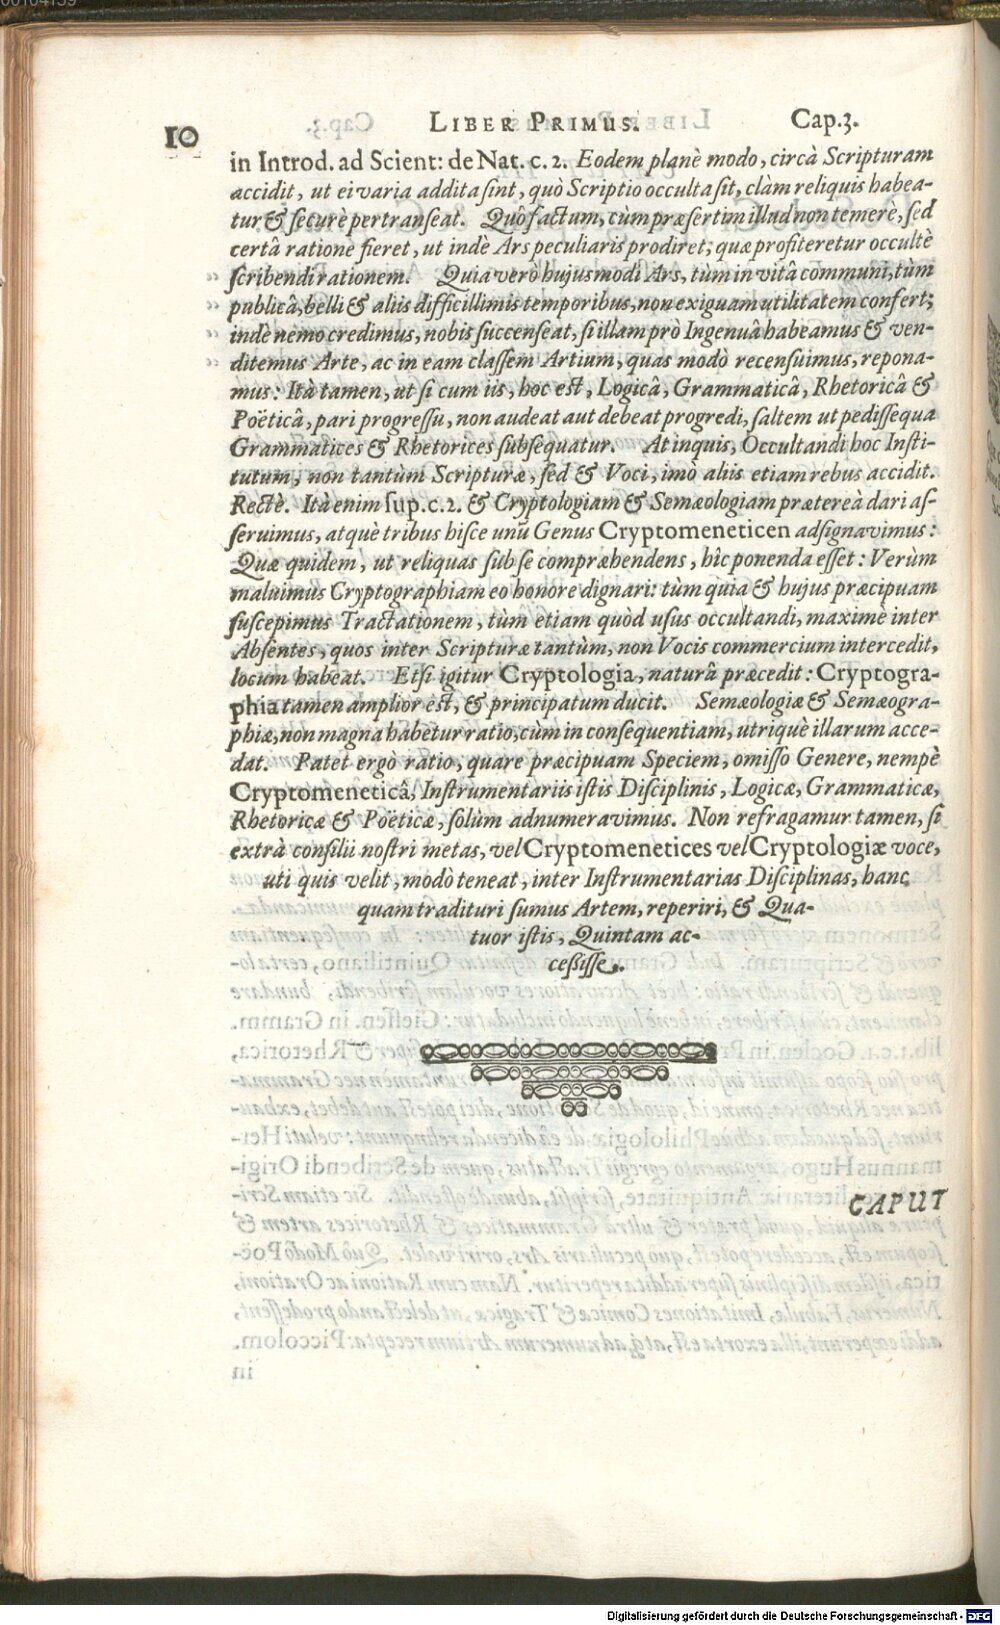 10 LIBER PRIMUS. Cap.3.
in Introd. ad Scient: de Nat. c. 2. Eodem planè modo, circà Scripturam
accidit, ut ei varia addita sint, quò Scriptio occulta sit, clàm reliquis habea-
tur & securè pertranseat. Quô factum, cùm præsertim illud non temerè, sed
certâ ratione fieret, ut indè Ars peculiaris prodiret; quæ profiteretur occultè
scribendi rationem. Quia verò hujusmodi Ars, tùm in vitâ communi, tùm
publicâ, belli & aliis difficillimis temporibus, non exiguam utilitatem confert;
indè nemo credimus, nobis succenseat, si illam prò Ingenuâ habeamus & ven-
ditemus Arte, ac in eam classem Artium, quas modò recensuimus, repona-
mus: Ità tamen, ut si cum iis, hoc est, Logicâ, Grammaticâ, Rhetoricâ &
Poëticâ, pari progressu, non audeat aut debeat progredi, saltem ut pedissequa
Grammatices & Rhetorices subsequatur. At inquis, Occultandi hoc Insti-
tutum, non tantùm Scripturæ, sed & Voci, imò aliis etiam rebus accidit.
Rectè. Ità enim sup. c. 2. & Cryptologiam & Semæologiam prætereà dari as-
seruimus, atquè tribus hisce unũ Genus Cryptomeneticen adsignavimus:
Quæ quidem, ut reliquas sub se compræhendens, hîc ponenda esset: Verùm
maluimus Cryptographiam eo honore dignari: tùm quia & hujus præcipuam
suscepimus Tractationem, tùm etiam quòd usus occultandi, maximè inter
Absentes, quos inter Scripturæ tantùm, non Vocis commercium intercedit,
locum habeat. Etsi igitur Cryptologia, naturâ præcedit: Cryptogra-
phia tamen amplior est, & principatum ducit. Semæologiæ & Semæogra-
phiæ, non magna habetur ratio, cùm in consequentiam, utriquè illarum acce-
dat. Patet ergò ratio, quare præcipuam Speciem, omisso Genere, nempè
Cryptomeneticâ, Instrumentariis istis Disciplinis, Logicæ, Grammaticæ,
Rhetoricæ & Poëticæ, solùm adnumeravimus. Non refragamur tamen, si
extrà consilii nostri metas, vel Cryptomenetices vel Cryptologiæ voce,
uti quis velit, modò teneat, inter Instrumentarias Disciplinas, hanc
quam tradituri sumus Artem, reperiri, & Qua-
tuor istis, Quintam ac-
cessisse.
CAPUT
Digitalisierung gefördert durch die Deutsche Forschungsgemeinschaft - DFG